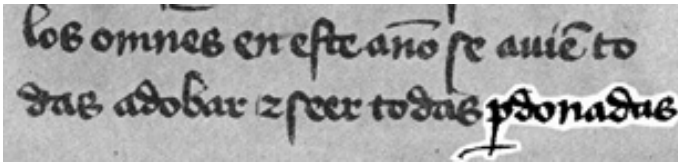 los omnes en este año se auiẽ to
das adobar ⁊ seer todas ꝑdonadas